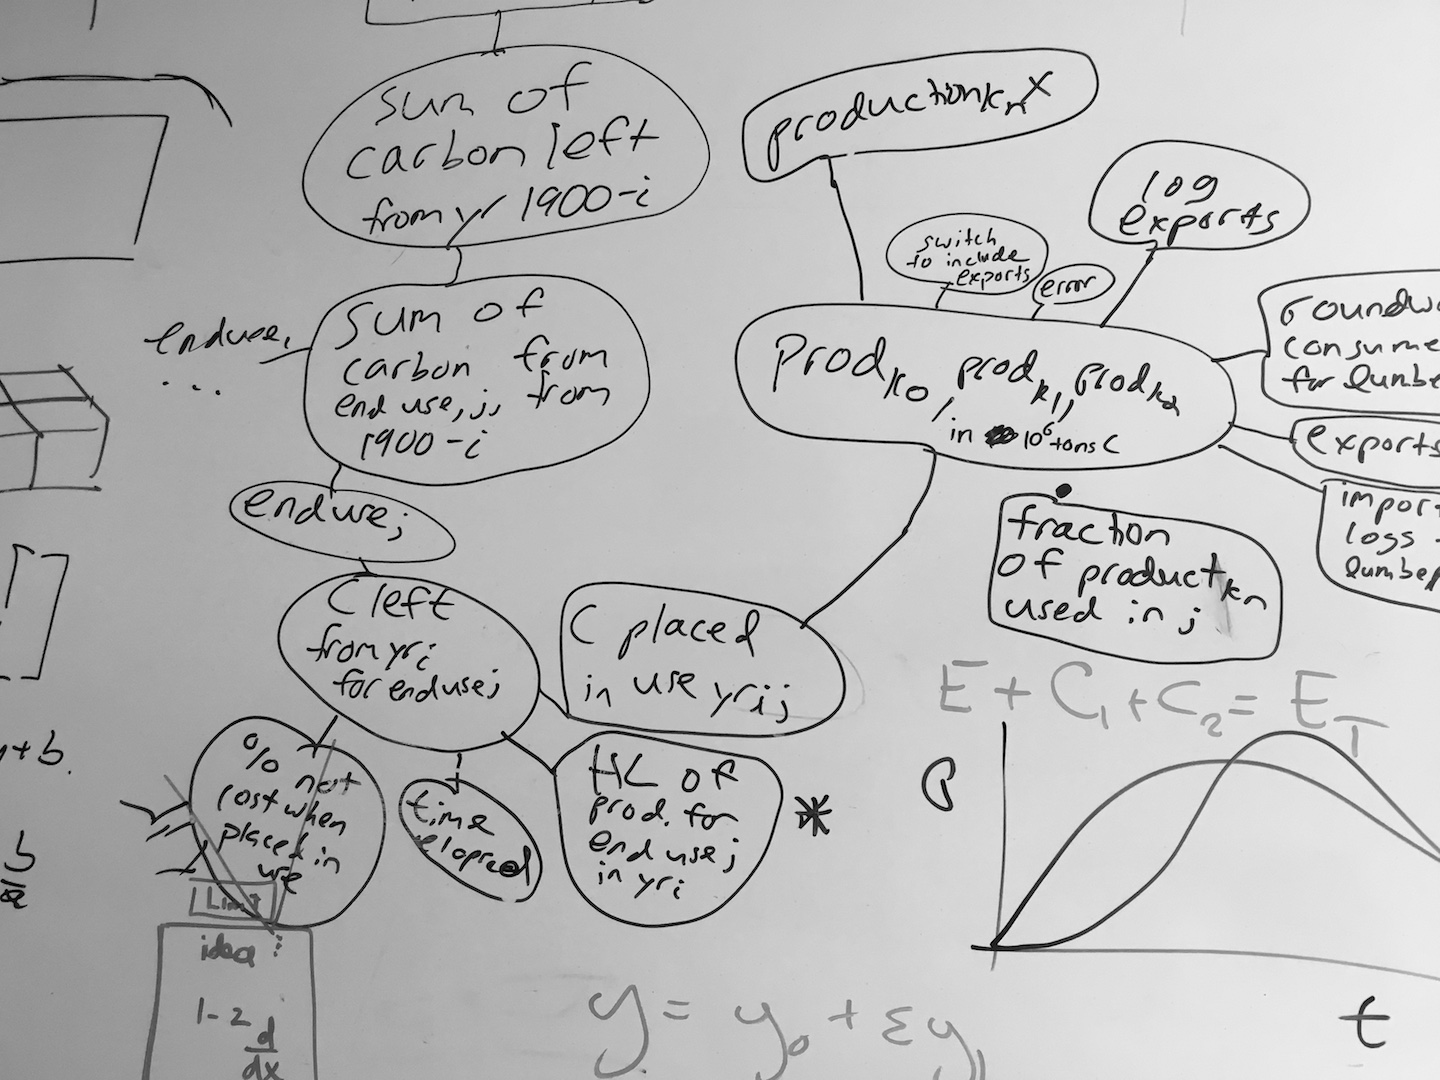 sum of
carbon left
from yr 1900-i
production kn X
log
exports
switch
to include
exports
error
enduse,
...
sum of
carbon from
end use, j, from
1900-i
prod k0, prod k1, prod k2
in 10⁶ tons C
consume
for lumbe
exports
impor
logs
lumber
enduse j
fraction
of product kn
used in j
C left
from yr i
for enduse j
C placed
in use yr i j
E + C₁ + C₂ = E_T
% not
lost when
placed in
use
time
elapsed
HL of
prod. for
end use j
in yr i
*
+ b.
b
a
idea :
1-2 d
dx
t
y = y₀ + εy₁